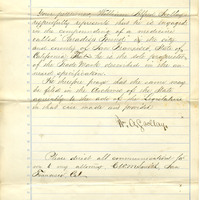 Your petitioner William Alfred
respectfully represents that he is engaged
in the compounding of a medicine
called "Paradise Found" in the city
and county of San Francisco, State of
California. That he is the sole proprietor
of the Trade Mark described in the
specification.
He therefore prays that the same may
be filed in the Archives of the State
agreeably to the acts of the Legislature
in that case made and provided.
Please direct all communications for
me to my attorney San
Francisco Cal.